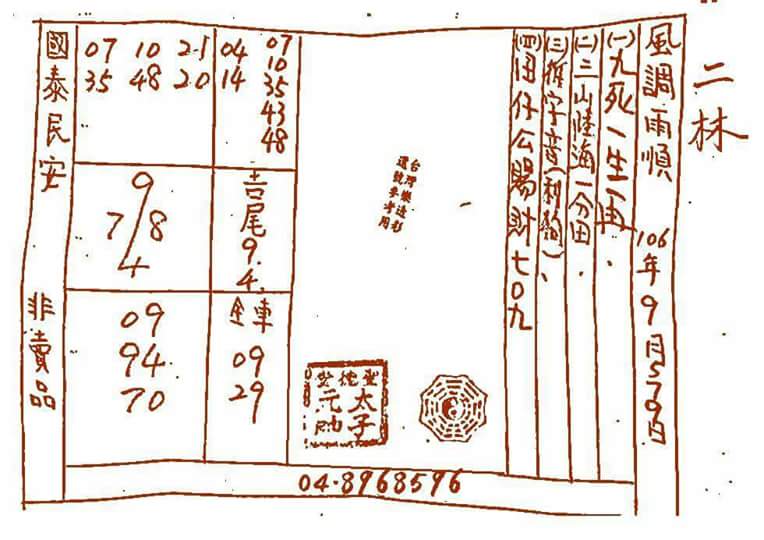 二林
風調雨順 106年9月5790日
(一)九死一生一再、
(二)三山陸海一分田、
(三)拆字音(利狗)、
(四)囝仔公賜財七0九
台灣樂透彩
選號參考用
太子
元帥
07 10 21 04 07
35 48 20 14 10
35
43
48
9
7/8
4
吉尾9.4.
09
94
70
全車
09
29
國泰民安 非賣品
04-8968596